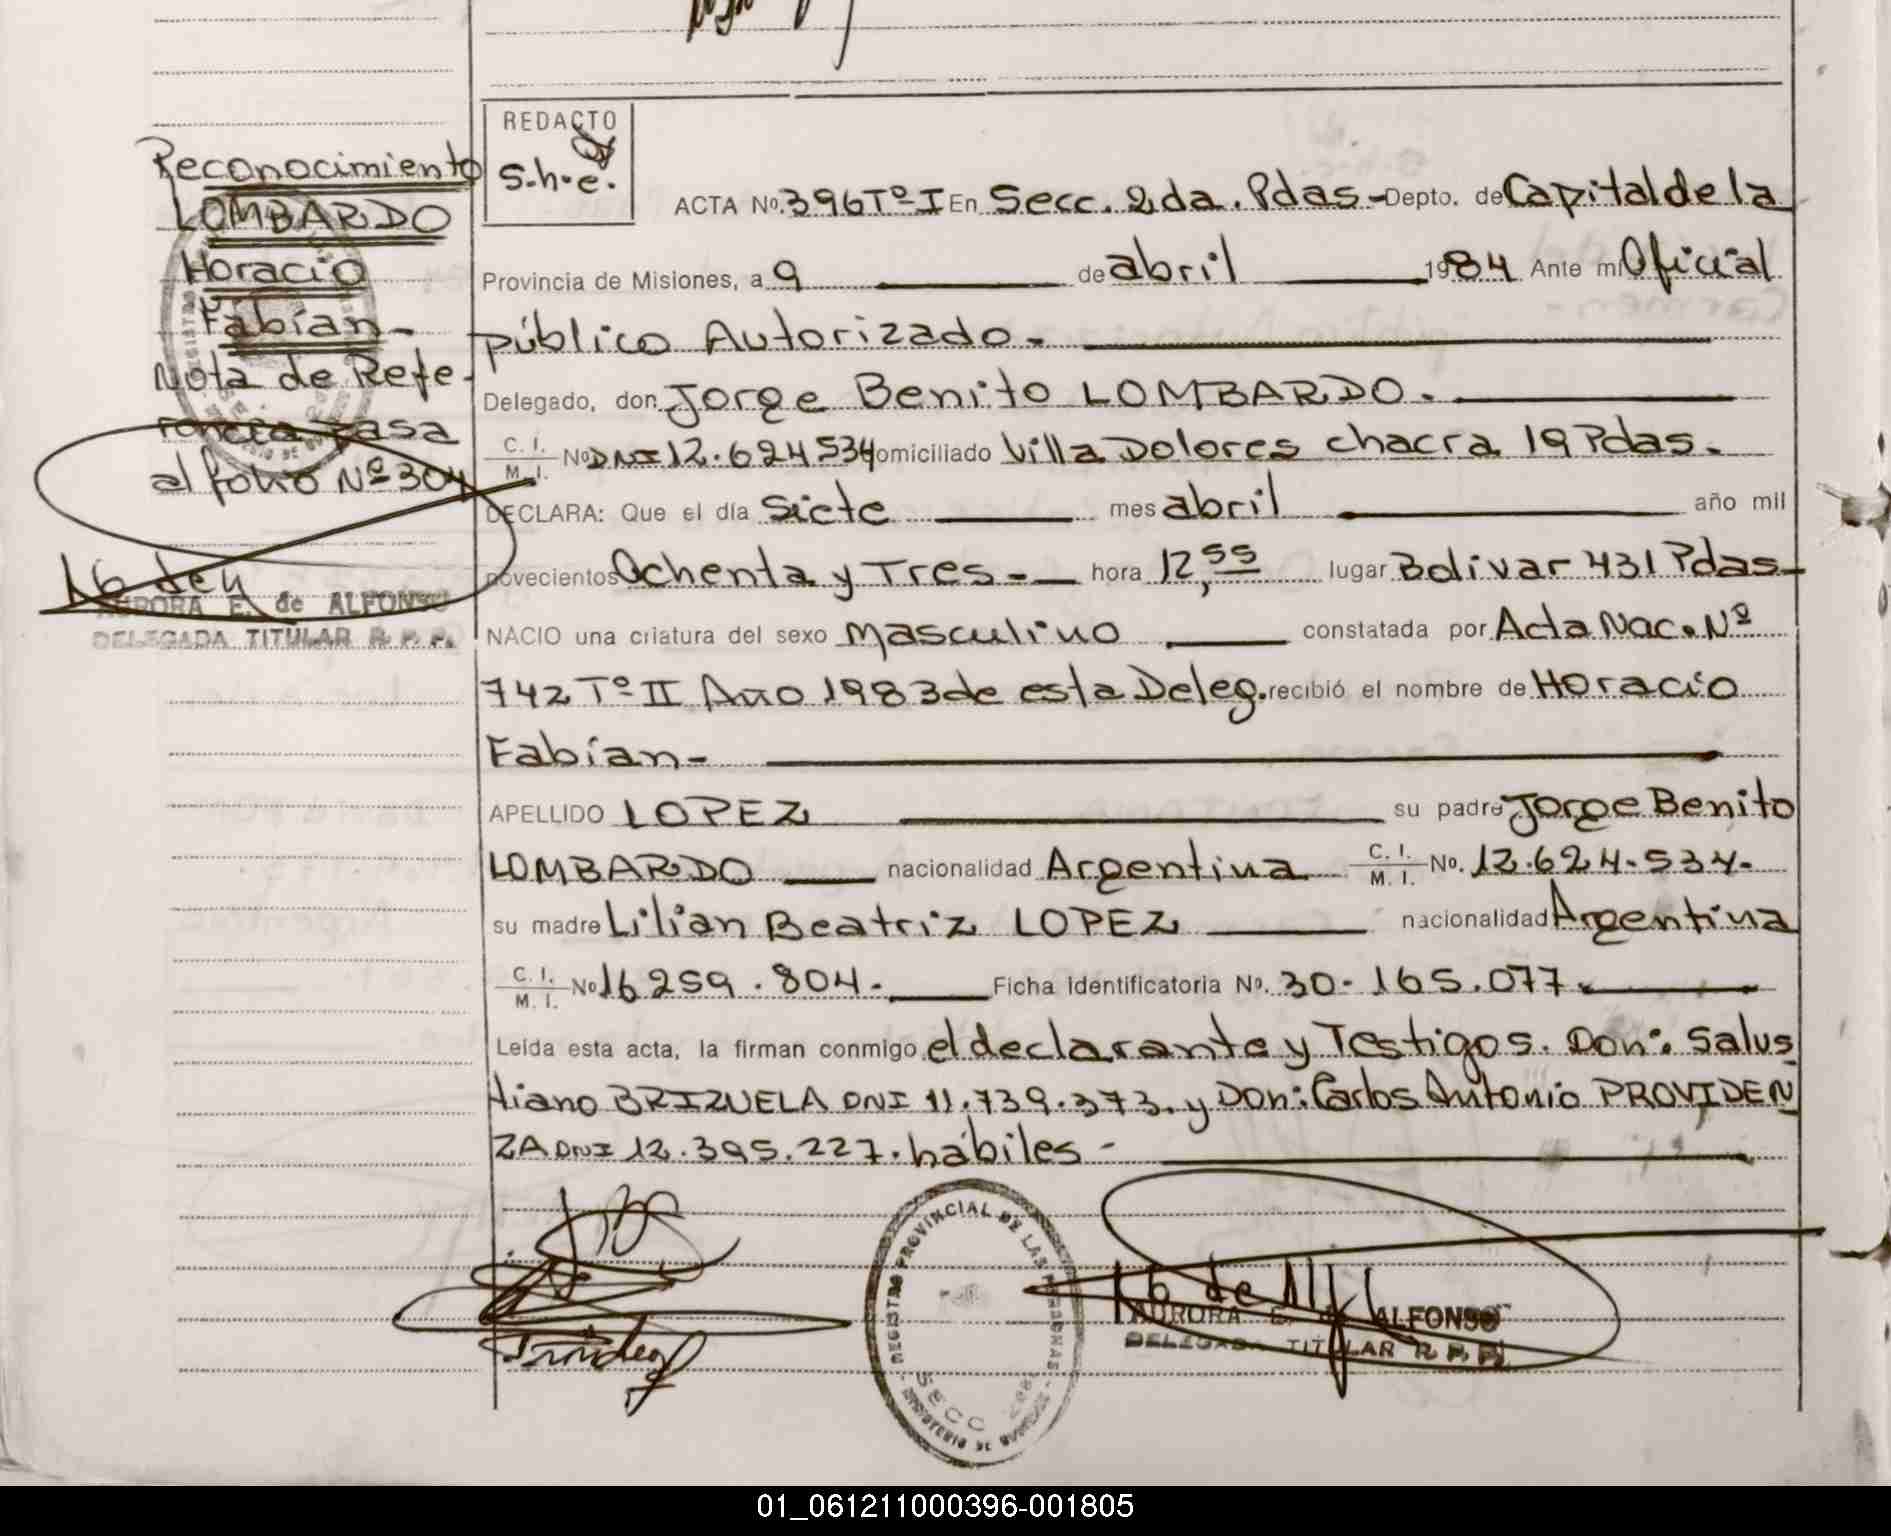 Reconocimiento
LOMBARDO
Horacio
Fabían-
Nota de Refe-
rencia pasa
al folio Nº 304
AURORA E. de ALFONSO
DELEGADA TITULAR R. P. P.
REDACTO
S.h.e.
ACTA Nº. 396 Tº I En Secc. 2da. Pdas.- Depto. de Capital de la
Provincia de Misiones, a 9 de abril 1984 Ante mi Oficial
público Autorizado.-
Delegado, don Jorge Benito LOMBARDO.
C. I. / M. I. Nº DNI 12.624.534 domiciliado Villa Dolores chacra 19 Pdas.
DECLARA: Que el día Siete mes abril año mil
novecientos Ochenta y Tres.- hora 12,55 lugar Bolivar 431 Pdas-
NACIO una criatura del sexo masculino constatada por Acta Nac. Nº
742 Tº II Año 1983 de esta Deleg. recibió el nombre de Horacio
Fabían-
APELLIDO LOPEZ su padre Jorge Benito
LOMBARDO nacionalidad Argentina C. I. / M. I. Nº. 12.624.534-
su madre Lilian Beatriz LOPEZ nacionalidad Argentina
C. I. / M. I. Nº 16259.804. Ficha Identificatoria Nº. 30.165.077.
Leída esta acta, la firman conmigo el declarante y Testigos. Don: Salus
tiano BRIZUELA DNI 11.739.373. y Don: Carlos Antonio PROVIDEN
ZA DNI 12.395.227. hábiles-
REGISTRO PROVINCIAL DE LAS PERSONAS
SECC 2da
AURORA E. de ALFONSO
DELEGADA TITULAR R. P. P.
01_061211000396-001805